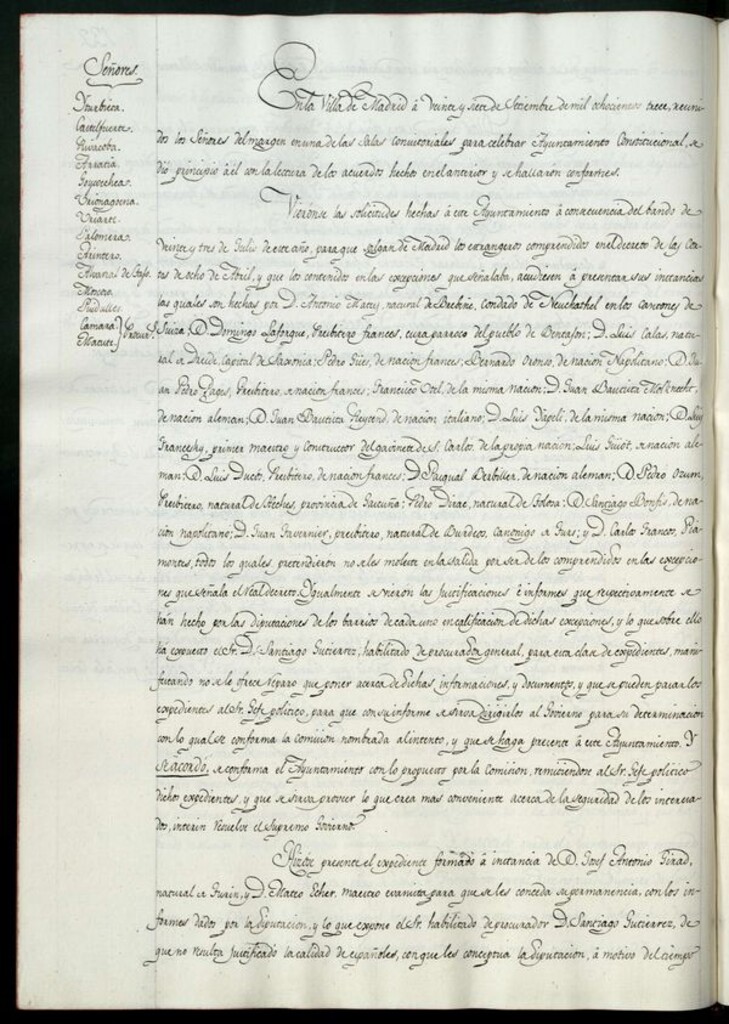 Señores.
Yturbieta.
Castelfuerte.
Rivacoba.
Arratia.
Goycochea.
Urionagoena.
Uriarte.
Salomera.
Arintero.
Moscoso.
Camara
Matute
En la Villa de Madrid à veinte y siete de Setiembre de mil ochocientos trece, reuni-
dos los Señores del margen en una de las Salas consistoriales para celebrar Ayuntamiento Constitucional, se
dió principio à él con la lectura de los acuerdos hechos en el anterior y se hallaron conformes.
Viéronse las solicitudes hechas à este Ayuntamiento à consecuencia del bando de
veinte y tres de Julio de este año, para que salgan de Madrid los extrangeros comprendidos en el decreto de las Cor-
tes de ocho de Abril, y que los contenidos en las excepciones que señalaba, acudiesen à presentar sus instancias
las quales son hechas por D. Antonio Matey, natural de condado de Neuchathel en los cantones de
Suiza; D. Domingo Laforgue, Presbitero frances, cura parroco del pueblo de D. Luis Calas, natu-
ral de Capital de Saxonia; Pedro de nacion frances; Bernardo Oronso, de nacion Napolitano; D. Ju-
an Pedro Pages, Presbitero, de nacion frances; Francisco de la misma nacion; D. Juan Bautista
de nacion aleman; D. Juan Bautista de nacion italiano; D. Luis Napoli, de la misma nacion; D.
primer maestro y constructor del gavinete de S. Carlos, de la propia nacion; Luis de nacion ale-
man; D. Luis Presbitero, de nacion frances; D. Pasqual de nacion aleman; D. Pedro
Presbitero, natural de provincia de Gascuña; Pedro natural de D. Santiago Bonfis, de na-
cion napolitano; D. Juan Tavernier, presbitero, natural de Burdeos, canonigo de y D. Carlos Francos, Pia-
montes, todos los quales pretendieron no se les moleste en la salida por ser de los comprendidos en las excepcio-
nes que señala el Real decreto. Ygualmente se vieron las justificaciones é informes que respectivamente se
han hecho por las diputaciones de los barrios de cada uno en calificacion de dichas excepciones, y lo que sobre ello
ha expuesto el Sr. D. Santiago Gutierrez, habilitado de procurador general, para esta clase de expedientes, mani-
festando no se le ofrece reparo que poner acerca de dichas informaciones, y documentos, y que se pueden pasar los
expedientes al Sr. Gefe politico, para que con su informe se sirva dirigirlos al Govierno para su determinacion
con lo qual se conforma la Comision nombrada al intento, y que se haga presente à este Ayuntamiento. Y
Se acordó: se conforma el Ayuntamiento con lo propuesto por la Comision, remitiendose al Sr. Gefe politico
dichos expedientes, y que se sirva proveer lo que crea mas conveniente acerca de la seguridad de los interesa-
dos, interin resuelve el supremo Govierno.
Hizose presente el expediente formado à instancia de D. Josef Antonio Girad,
natural de Turin, y D. Mateo Echer, maestro evanista para que se les conceda su permanencia, con los in-
formes dados por la diputacion, y lo que expone el Sr. habilitado de procurador D. Santiago Gutierrez, de
que no resulta justificado la calidad de españoles, con que les conceptua la Diputacion, à motivo del tiempo